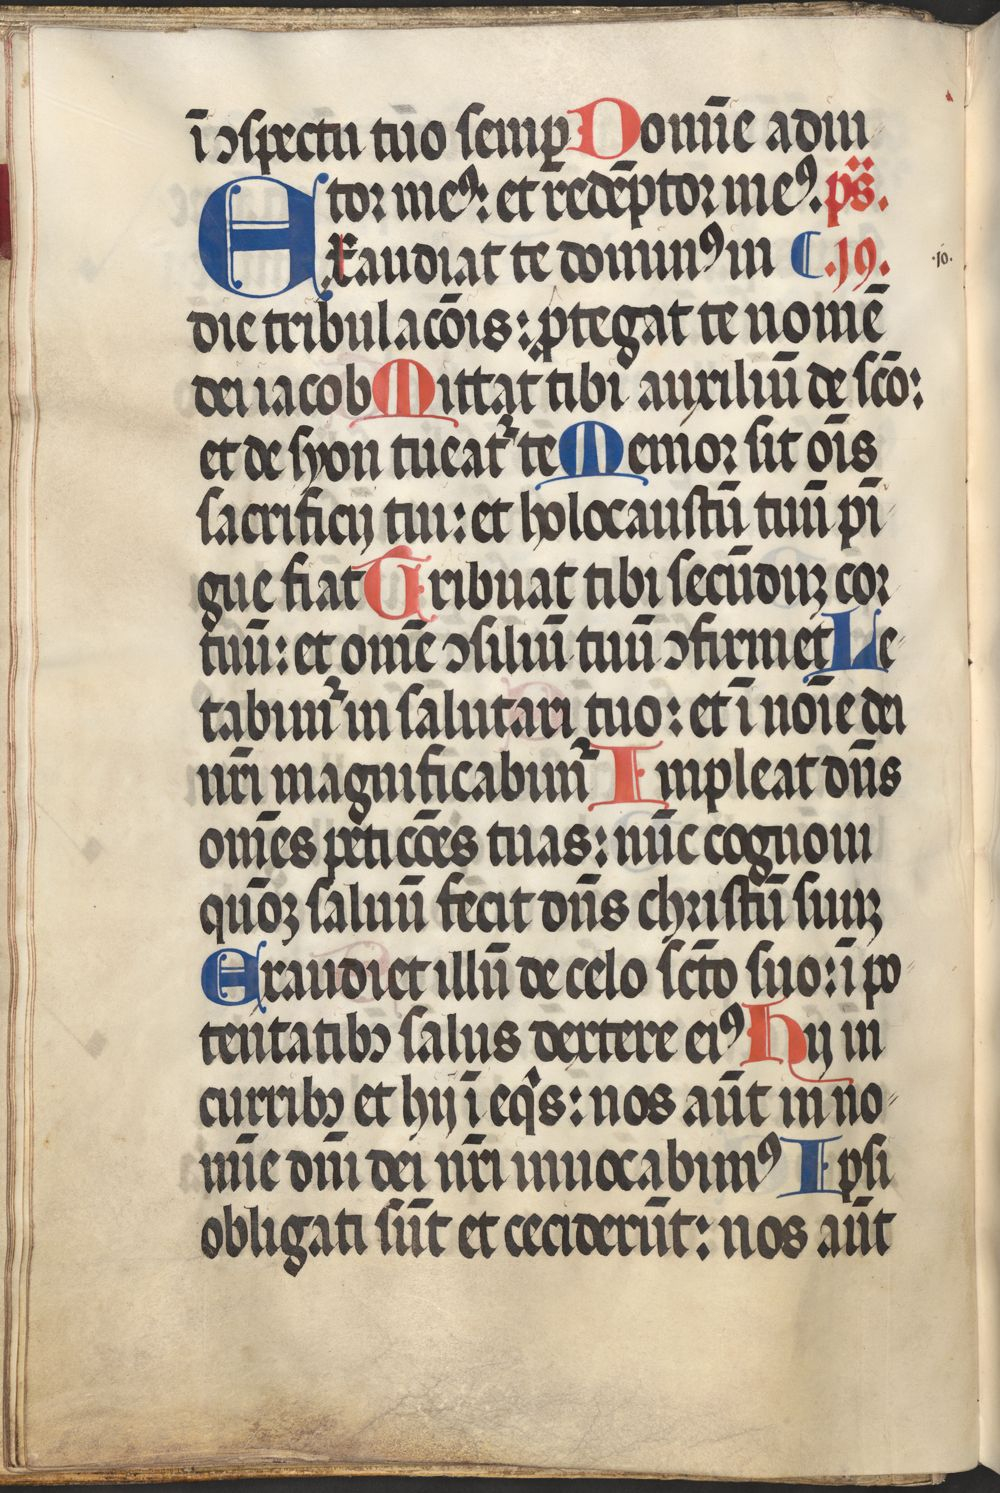 ī ɔspectu tuo semꝑ Domīe adiu
tor meꝰ: et redēptor meꝰ. ps̄.
Exaudiat te dominꝰ in C.19.
·10·
die tribulacōis: ꝓtegat te nomē
dei iacob Mittat tibi auxiliū de scō:
et de syon tueat᷑ te Memor sit oīs
sacrificij tui: et holocaustū tuū pī
gue fiat Tribuat tibi secūduꝫ cor
tuū: et omē ɔsiliū tuū ɔfirmet Le
tabim᷑ in salutari tuo: et ī noīe dei
nr̄i magnificabim᷑ Impleat dn̄s
omēs peticōes tuas: nūc cognoui
qm̄ saluū fecit dn̄s christū suuꝫ
Exaudiet illū de celo scт̄o suo: ī po
tentatibꝫ salus dextere eiꝰ Hij in
curribꝫ et hij ī eqͥs: nos aūt in no
mīe dn̄i dei nr̄i inuocabimꝰ Ipsi
obligati sūt et ceciderūt: nos aūt